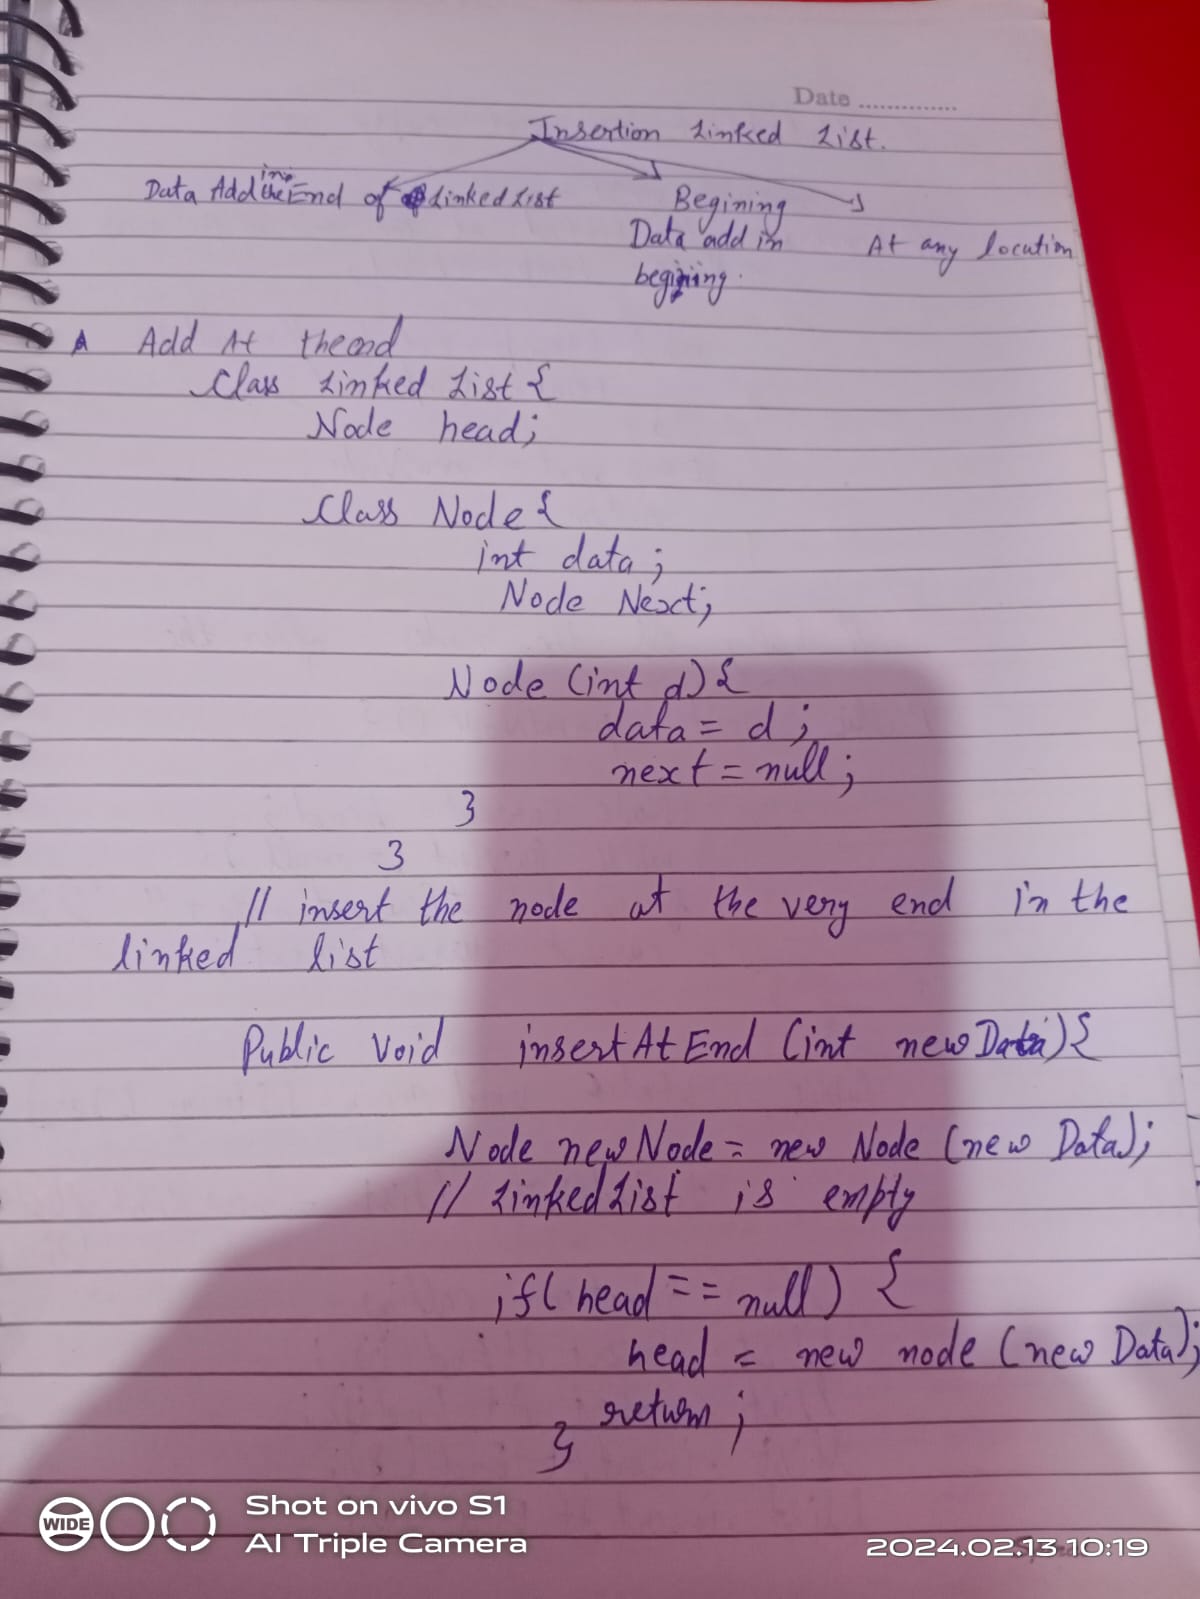 Date ..............
Insertion Linked List.
Data Add in the End of Linked List
Begining
Data add in
begining.
At any location
A Add At the end
Class Linked List {
Node head;
Class Node {
int data;
Node Next;
Node (int d) {
data = d;
next = null;
}
}
// insert the node at the very end in the
linked list
Public Void insertAtEnd (int newData) {
Node newNode = new Node (new Data);
// LinkedList is empty
if( head == null) {
head = new node (new Data);
return;
}
WIDE
Shot on vivo S1
AI Triple Camera
2024.02.13 10:19